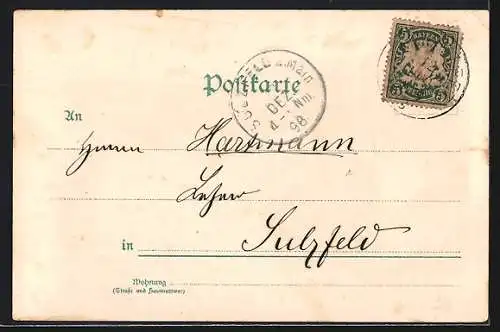 BAYERN
5 5
5 5
SULZFELD a. Main
DEZ
98
Postkarte
An
Herrn Hartmann
Lehrer
in Sulzfeld
Wohnung
(Straße und Hausnummer)